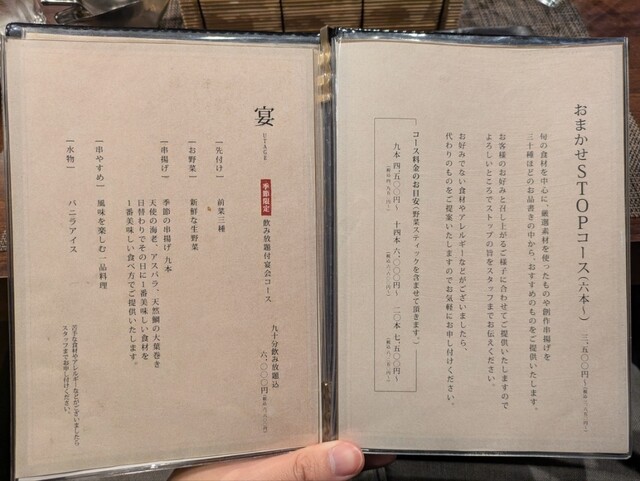 おまかせSTOPコース（六本～） 三、五〇〇円～（税込三、八五〇円～）
旬の食材を中心に、厳選素材を使ったものや創作串揚げを
三十種ほどのお品書きの中から、おすすめのものをご提供いたします。
お客様のお好みと召し上がるご様子に合わせてご提供いたしますので
よろしいところでストップの旨をスタッフまでお伝えください。
お好みでない食材やアレルギーなどがございましたら、
代わりのものをご提案いたしますのでお気軽にお申し付けください。
コース料金のお目安（野菜スティックを含ませて頂きます。）
九本 四、五〇〇円～ 十四本 六、〇〇〇円～ 二〇本 七、五〇〇円～
（税込四、九五〇円～） （税込六、六〇〇円～） （税込八、二五〇円～）
宴 UTAGE
季節限定 飲み放題付宴会コース
九十分飲み放題込
六、〇〇〇円（税込六、六〇〇円）
［先付け］ 前菜三種
［お野菜］ 新鮮な生野菜
［串揚げ］ 季節の串揚げ 九本
天使の海老、アスパラ、天然鯛の大葉巻き
日替わりでその日に1番美味しい食材を
1番美味しい食べ方でご提供いたします。
［串やすめ］ 風味を楽しむ一品料理
［水物］ バニラアイス
苦手な食材やアレルギーなどがございましたら
スタッフまでお申し付けください。